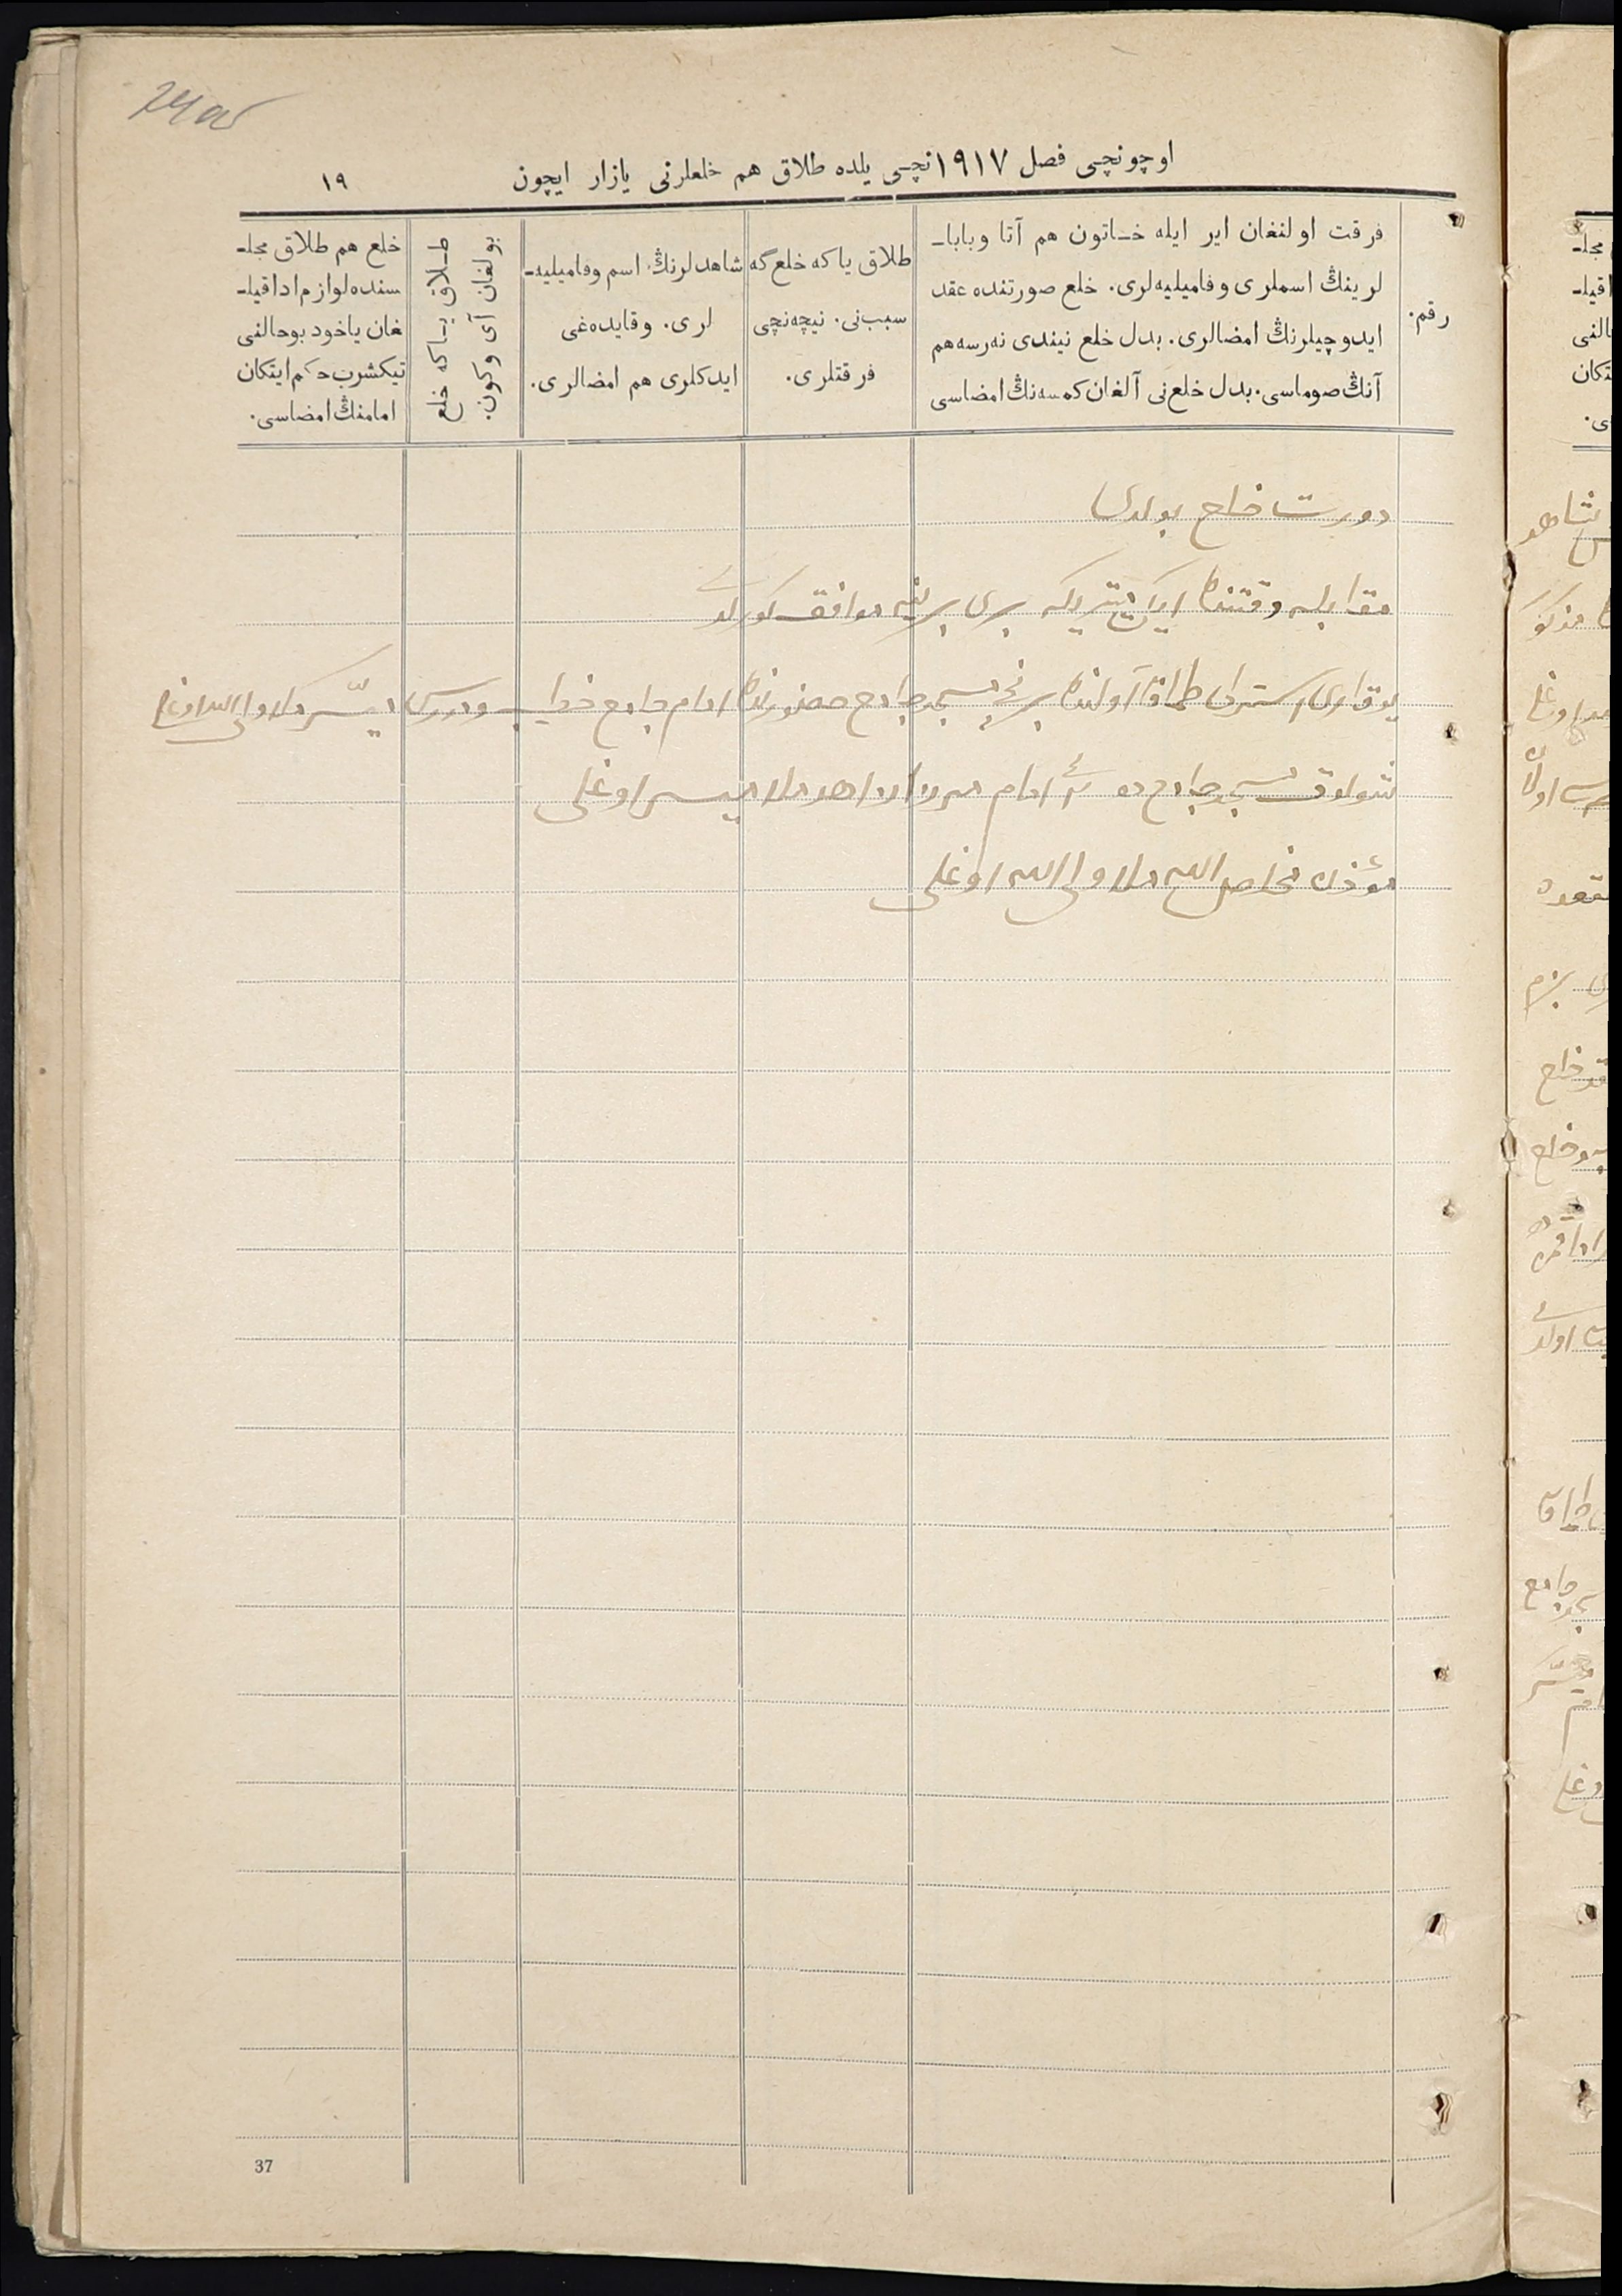 اوچونچی فصل ١٩١٧نچی یلده طلاق هم خلعلرنی یازار ایچون
١٩
رقم.
فرقت اولنغان ایر ایله خاتون هم آتا وبابا-
لرینڭ اسملری وفامیلیه‌لری. خلع صورتنده عقد
ایدوچیلرنڭ امضالری. بدل خلع نیندی نه‌رسه هم
آنڭ صوماسی. بدل خلع‌نی آلغان کمسه‌نڭ امضاسی
طلاق یاکه خلع‌گه
سبب‌نی. نیچه‌نچی
فرقتلری.
شاهدلرنڭ اسم وفامیلیه-
لری. وقایده‌غی
ایدکلری هم امضالری.
طلاق یاکه خلع
بولغان آی وکون.
خلع هم طلاق مجلـ
سنده لوازم ادا قیلـ
غان یاخود بوحالنی
تیکشرب حکم ایتکان
امامنڭ امضاسی.
دورت خلع بولدی
مقابله وقتنده ایکی میتریکه بری برینه موافق کورلدی
یوقاری استرلی طماق آولنده برنچی مسجد جامع حضورنده امام جامع خطیب ومدرس میسر ملا ولی الله اوغلی
شولوق مسجد جامع ده ٢ امام ملا میسر اوغلی
مؤذن ملا ولی الله اوغلی
37